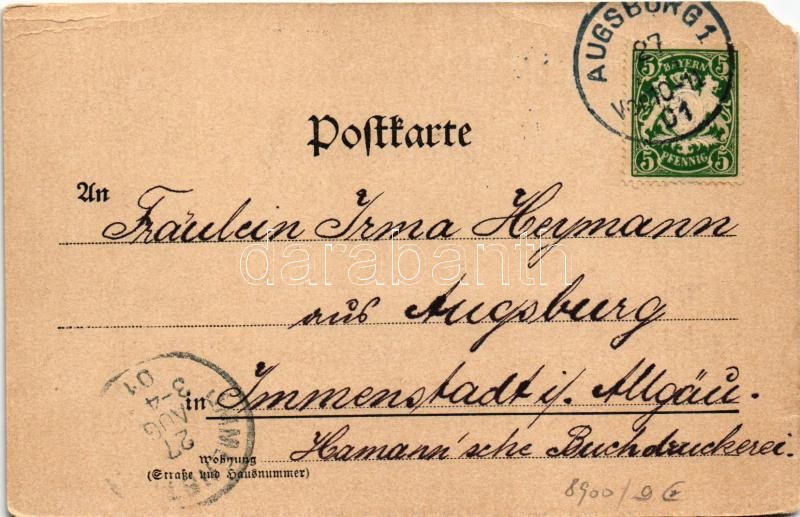 AUGSBURG 1
27
01
5 BAYERN 5
5 PFENNIG 5
Postkarte
An
Fräulein Irma Heymann
darabanth
aus Augsburg
in Immenstadt i/ Allgäu.
Hamann'sche Buchdruckerei.
Wohnung
(Straße und Hausnummer)
27
AUG
3-4
01
8900/